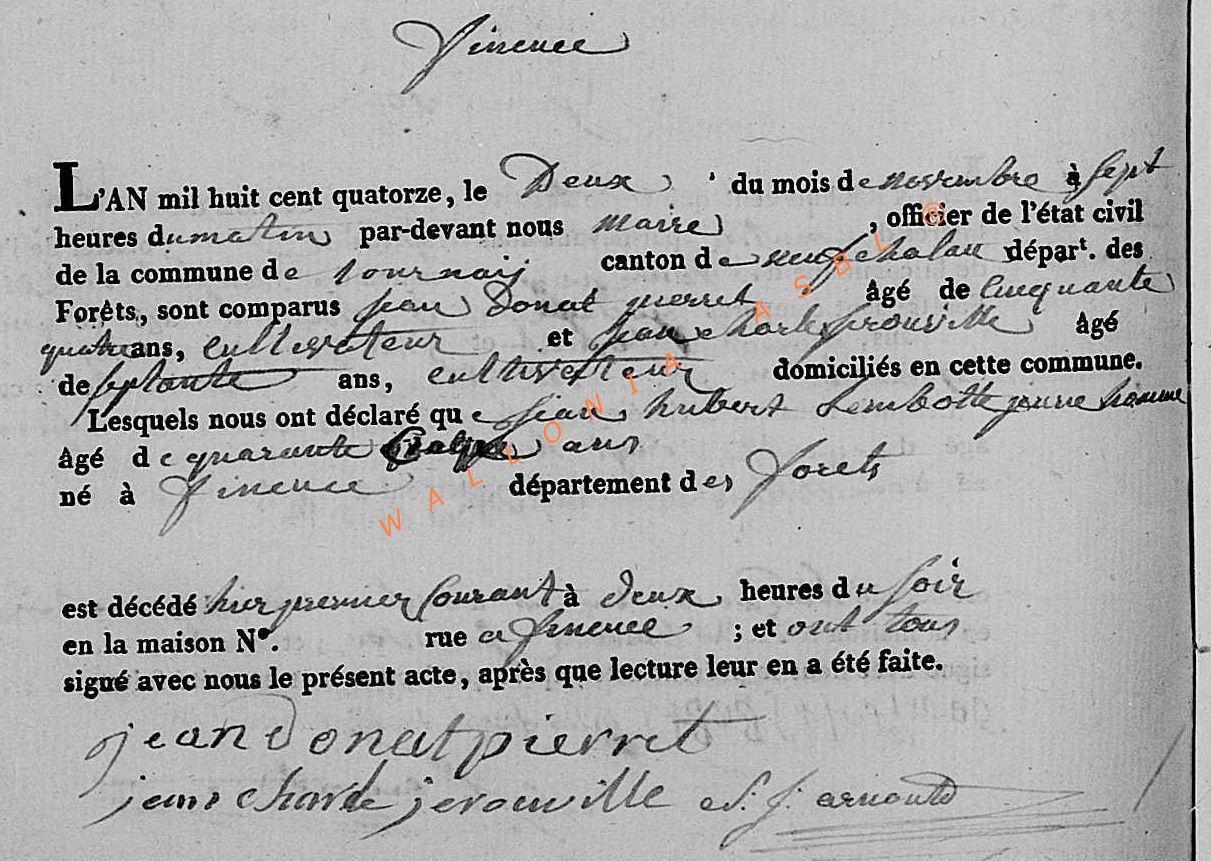 Finence
L'AN mil huit cent quatorze, le Deux du mois de novembre à sept
heures du matin par-devant nous maire, officier de l'état civil
de la commune de tournay canton de neufchatau départ. des
Forêts, sont comparus jean Donat pierret âgé de Cincquante
quatre ans, cultivateur et jean charle jerouville âgé
de septante ans, cultivateur domiciliés en cette commune.
Lesquels nous ont déclaré que jean hubert Lembotte jeune homme
âgé de quarante ans
né à finence département des forets
est décédé hier premier Courant à deux heures du soir
en la maison N°. rue a finence ; et ont tous
signé avec nous le présent acte, après que lecture leur en a été faite.
jean donat pierret
jean charle jerouville arnould
WALLONIA ASBL ©